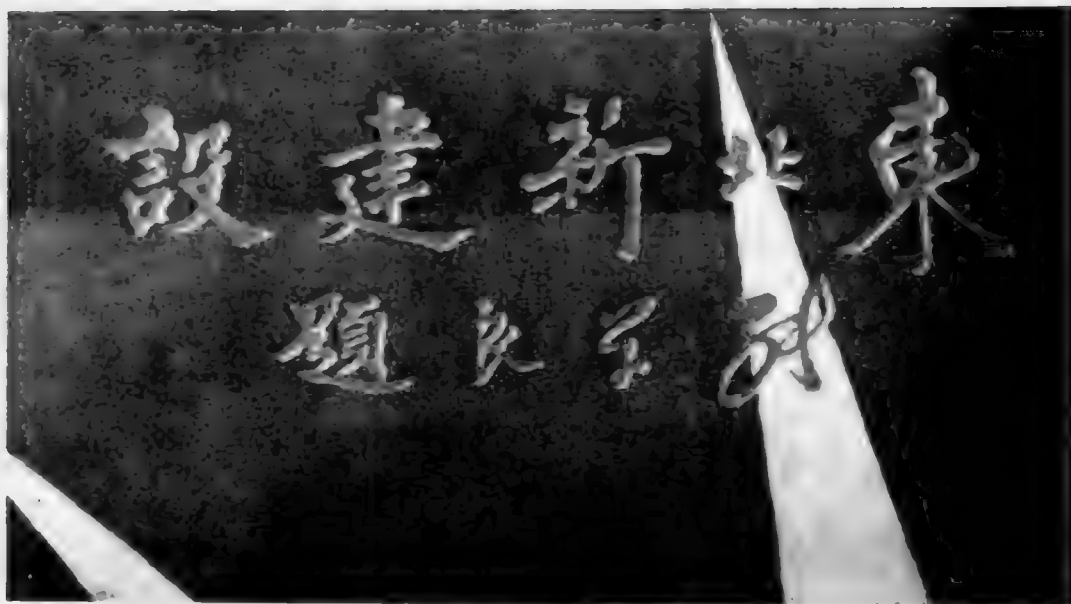 東北新建設
張學良題